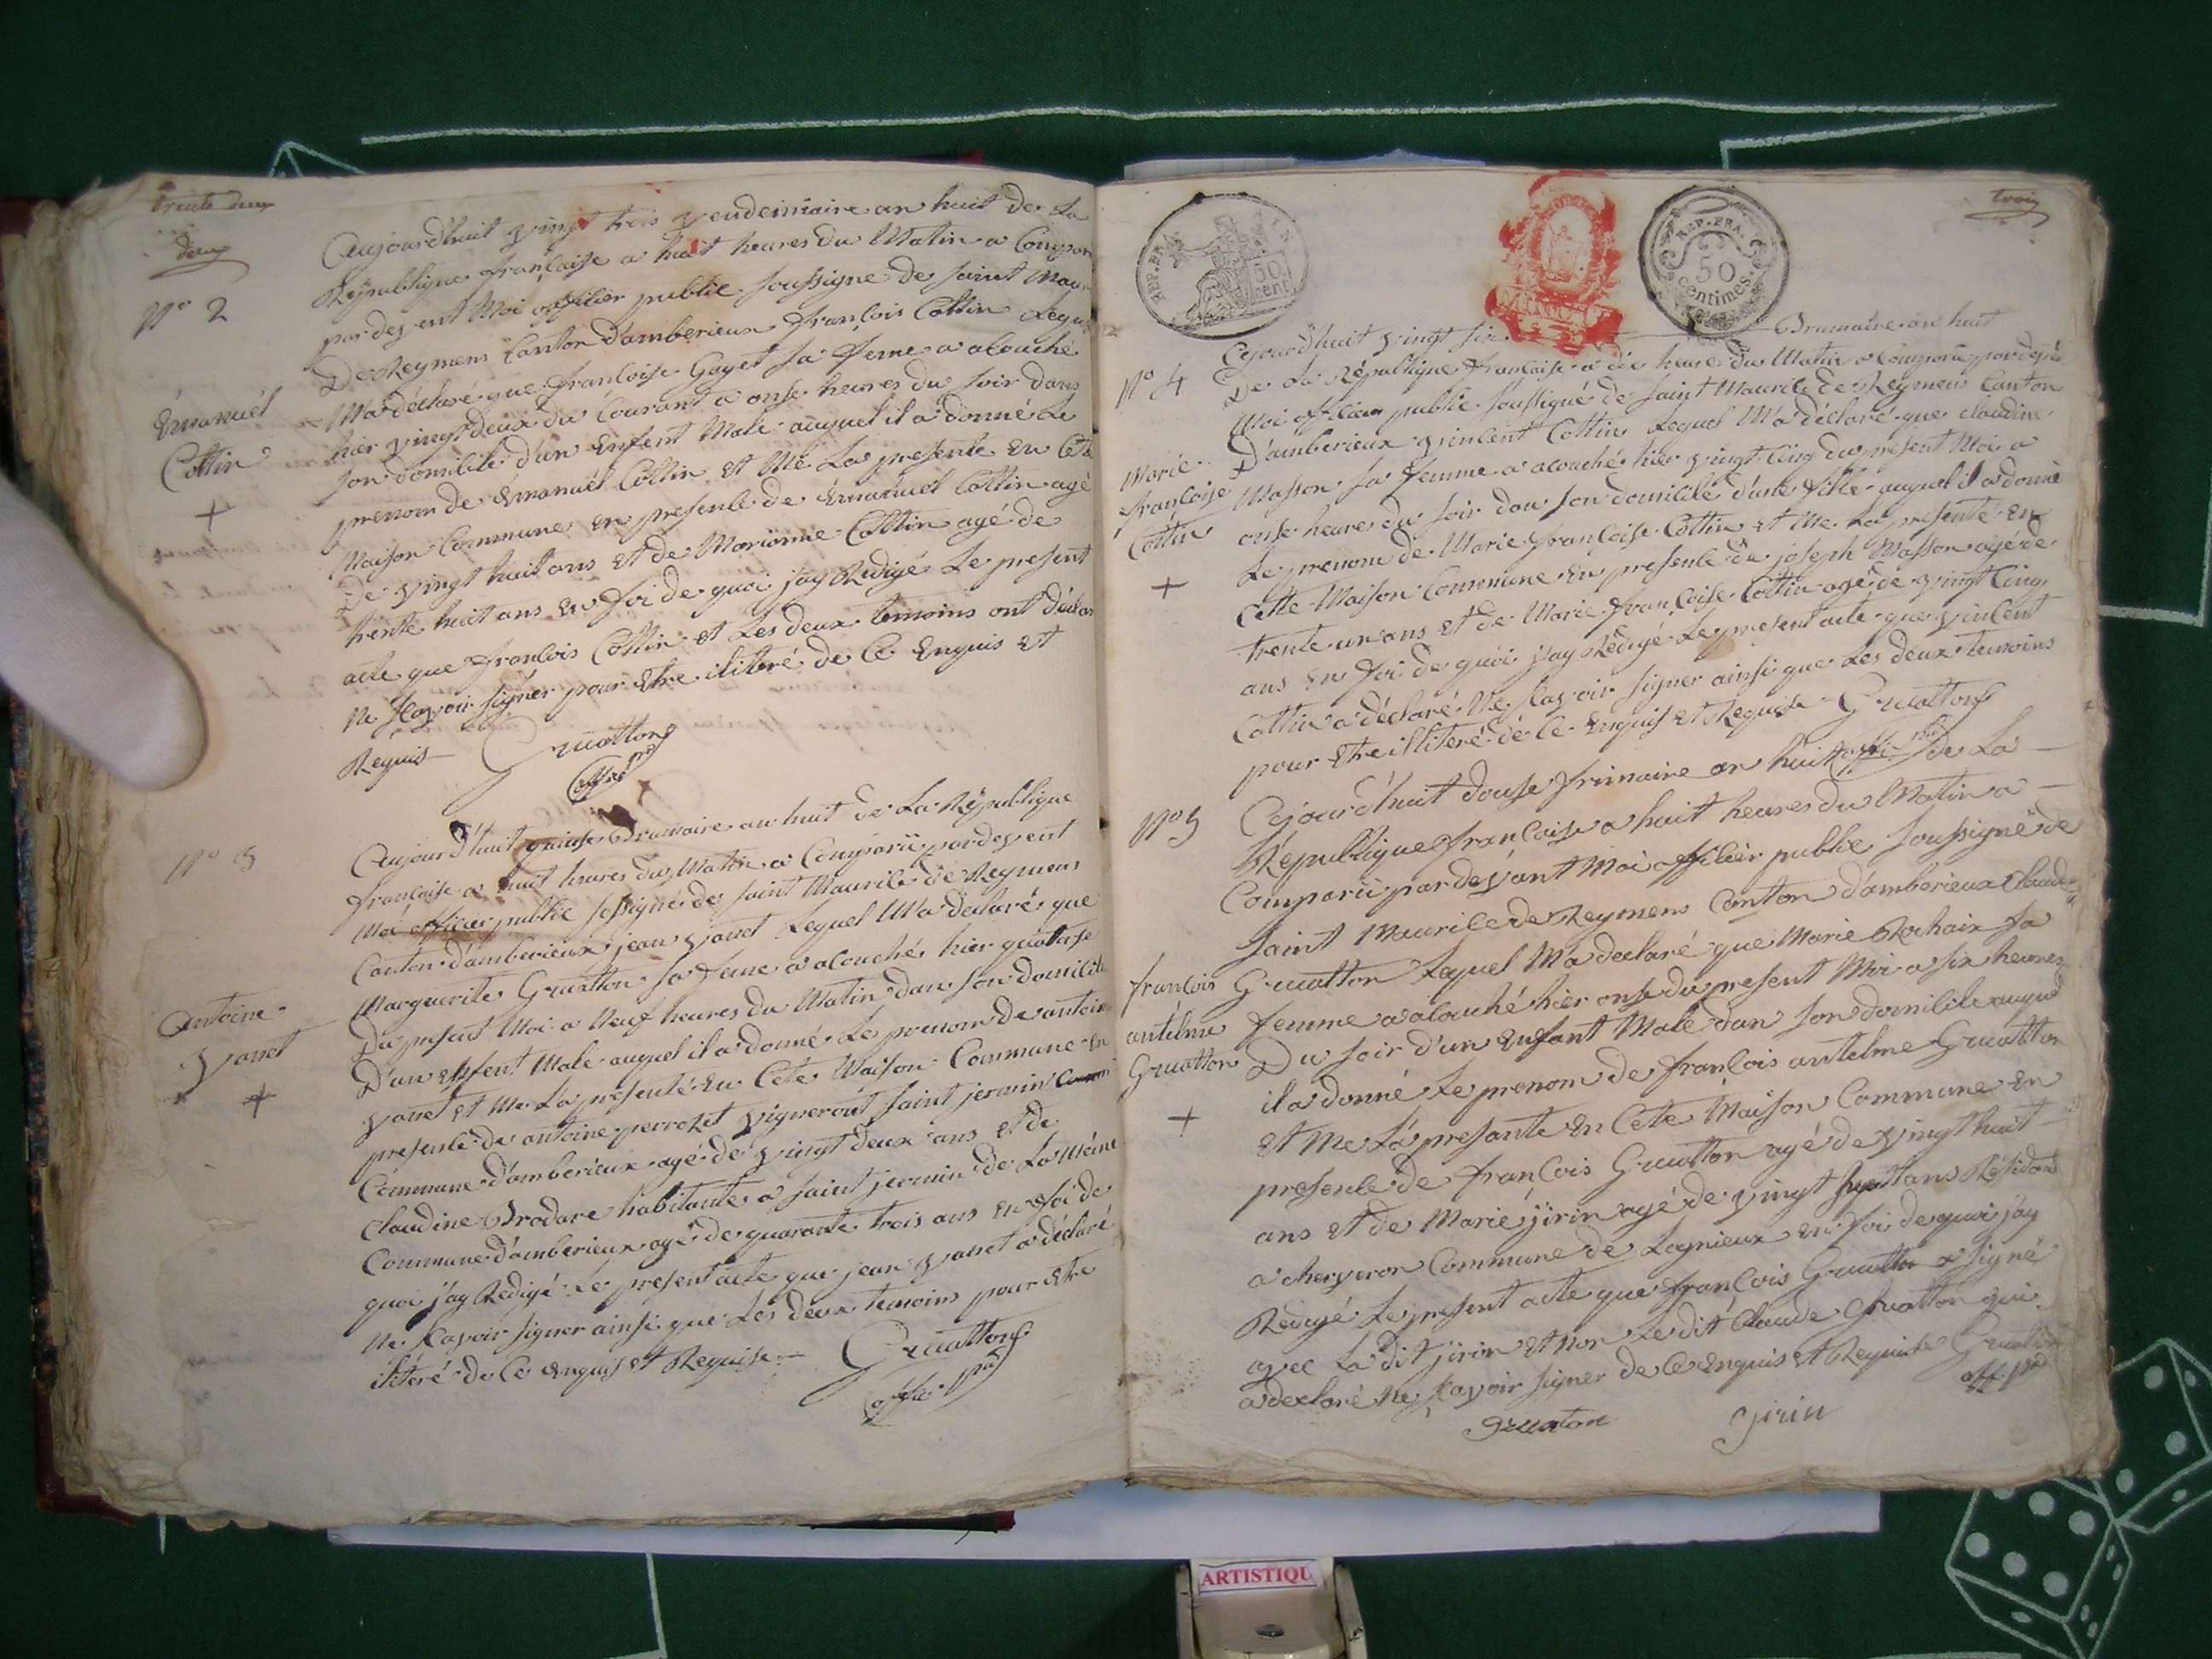 trente deux
deux
N° 2
Emanuél
Cottin
+
Aujourdhuit vingt trois vendemiaire an huit de la
Republique francaise a huit heures du Matin a Compar
par devent Moi officier public soussigne de saint Mau
De Reymens Canton d'amberieux francois Cottin Lequ
M'a déclaré que francoise Gayet sa feme a acouché
hier vingt deux du Courant a onse heures du soir dans
son domicile d'un Enfent Male auquel il a donné le
prenom de Emanuél Cottin et Me La presente En Cete
Maison Commune En presence de Emanuel Cottin agé
De vingt huit ans et de Marianne Cottin agé de
trente huit ans en foi de quoi jay Redigé Le present
acte que francois Cottin et Les deux temoins ont déclar
Ne scavoir signer pour Etre iliteré de Ce Enquis Et
Requis Gruatton
N° 3
Antoine
vanet
+
Aujourd'huit quinse Brumaire an huit de La Republique
francaise a huit heures du Matin a Comparü pardevent
Moi officier public sossigné de saint Maurice de Reymens
Canton d'amberieux jean vanet Lequel M'a declaré que
Marguerite Gruatton sa feme a acouché hier quatorse
Du present Moi a Neuf heures du Matin dan son domicile
D'un Enfent Male auquel il a donné Le prenom de antoine
vanet et Me La presenté En Cete Maison Commune En
presence de antoine perrozet vigneront saint jermin
Commune d'amberieux agé de vingt deux ans et de
Claudine Brodare habitante a saint jermin de La Méme
Commune d'amberieux agé de quarante trois ans En foi de
quoi j'ay Redigé Le present acte que jean vanet a déclaré
Ne scavoir signer ainsi que Les deux temoins pour Etre
iliteré de Ce Enquis et Requise Gruatton
offic. pub
troix
REP. FRA.
50
cent.
REP. FRA.
50
centimes.
N° 4
Marie
francoise
Cottin
+
Cejourdhuit vingt six Brumaire an huit
De La Republique francaise a dix heure du Matin a Comparü pardevé
Moi officier public soussigné de saint Maurice de Reymens Canton
D'amberieux vincent Cottin Lequel M'a déclaré que Claudine
Masson sa femme a acouché hier vingt cinq du present Moi a
onse heures du soir dan son domicile d'une fille auquel il a donné
Le prenom de Marie francoise Cottin et Me La presente En
Cette Maison Commune En presence de joseph Masson agé de
trente un ans et de Marie francoise Cottin agé de vingt Cinq
ans En foi de quoi jay Rédigé Le present acte que vincent
Cottin a déclaré Ne scavoir signer ainsi que Les deux temoins
pour Etre illiteré de Ce Enquis et Requise Gruatton
N° 5
francois
antelme
Gruatton
+
Cejourd'huit douse frimaire an huit de La
République francoise a huit heures du Matin a
Comparü par devant Moi officier public soussigné de
saint Maurice de Reymens Canton d'amberieux Claude
Gruatton Lequel M'a declaré que Marie Rochaix sa
femme a acouché hier onse du present Moi a six heures
Du soir d'un Enfant Male dan son domicile auquel
il a donné Le prenom de francois antelme Gruatton
et Me La presante En Cete Maison Commune En
presence de francois Gruatton agé de vingt huit
ans et de Marie jirin agé de vingt ans Résidant
a Commune de Lagnieux En foi de quoi jay
Redigé Le present acte que francois Gruatton a signé
avec La dit jirin et non Le dit Claude Gruatton qui
a declaré Ne scavoir signer de Ce Enquis et Requise Gruatton
off. pub
gruaton jirin
ARTISTIQU